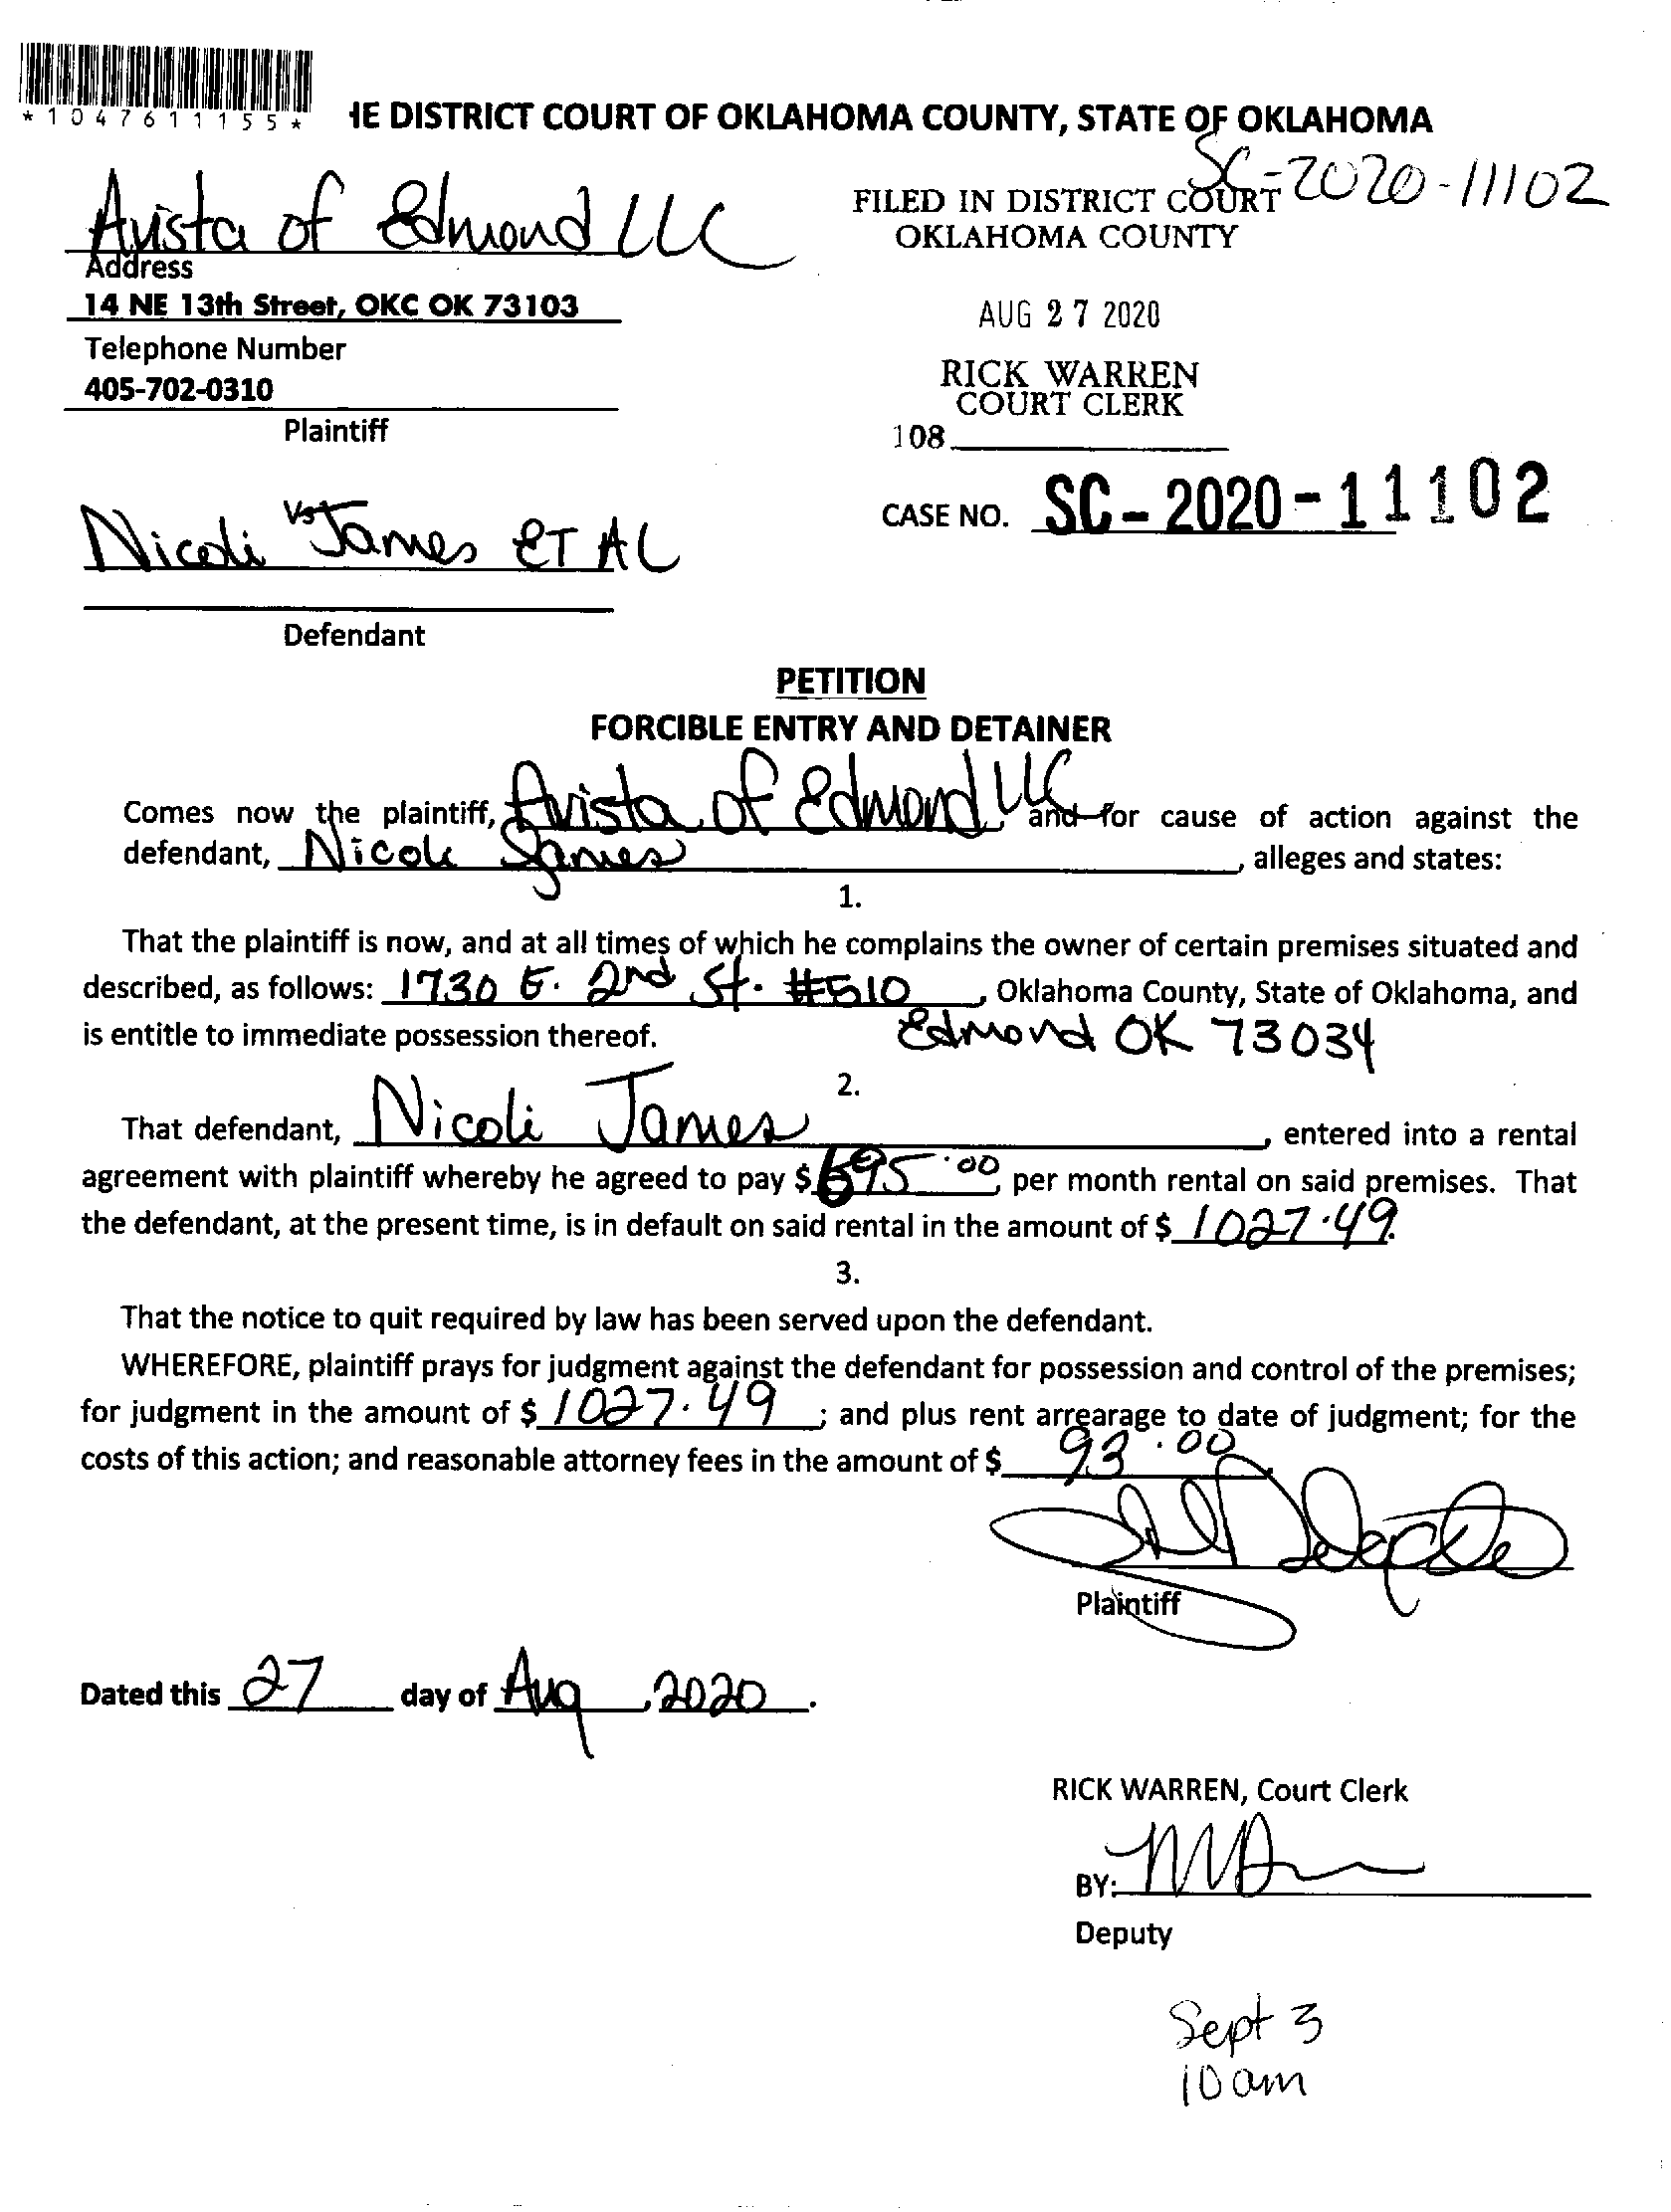 *1047611155*
IE DISTRICT COURT OF OKLAHOMA COUNTY, STATE OF OKLAHOMA
SC-2020-11102
Avista of Edmond LLC
FILED IN DISTRICT COURT
OKLAHOMA COUNTY
Address
14 NE 13th Street, OKC OK 73103
AUG 27 2020
Telephone Number
405-702-0310
RICK WARREN
COURT CLERK
Plaintiff
108
Vs.
CASE NO. SC-2020-11102
Nicoli James ET AL
Defendant
PETITION
FORCIBLE ENTRY AND DETAINER
Comes now the plaintiff, Avista of Edmond LLC, and for cause of action against the
defendant, Nicole James, alleges and states:
1.
That the plaintiff is now, and at all times of which he complains the owner of certain premises situated and
described, as follows: 1730 E. 2nd St. #510, Oklahoma County, State of Oklahoma, and
is entitle to immediate possession thereof. Edmond OK 73034
2.
That defendant, Nicoli James, entered into a rental
agreement with plaintiff whereby he agreed to pay $695.00 per month rental on said premises. That
the defendant, at the present time, is in default on said rental in the amount of $ 1027.49.
3.
That the notice to quit required by law has been served upon the defendant.
WHEREFORE, plaintiff prays for judgment against the defendant for possession and control of the premises;
for judgment in the amount of $ 1027.49; and plus rent arrearage to date of judgment; for the
costs of this action; and reasonable attorney fees in the amount of $ 93.00.
Plaintiff
Dated this 27 day of Aug, 2020.
RICK WARREN, Court Clerk
BY:
Deputy
Sept 3
10am